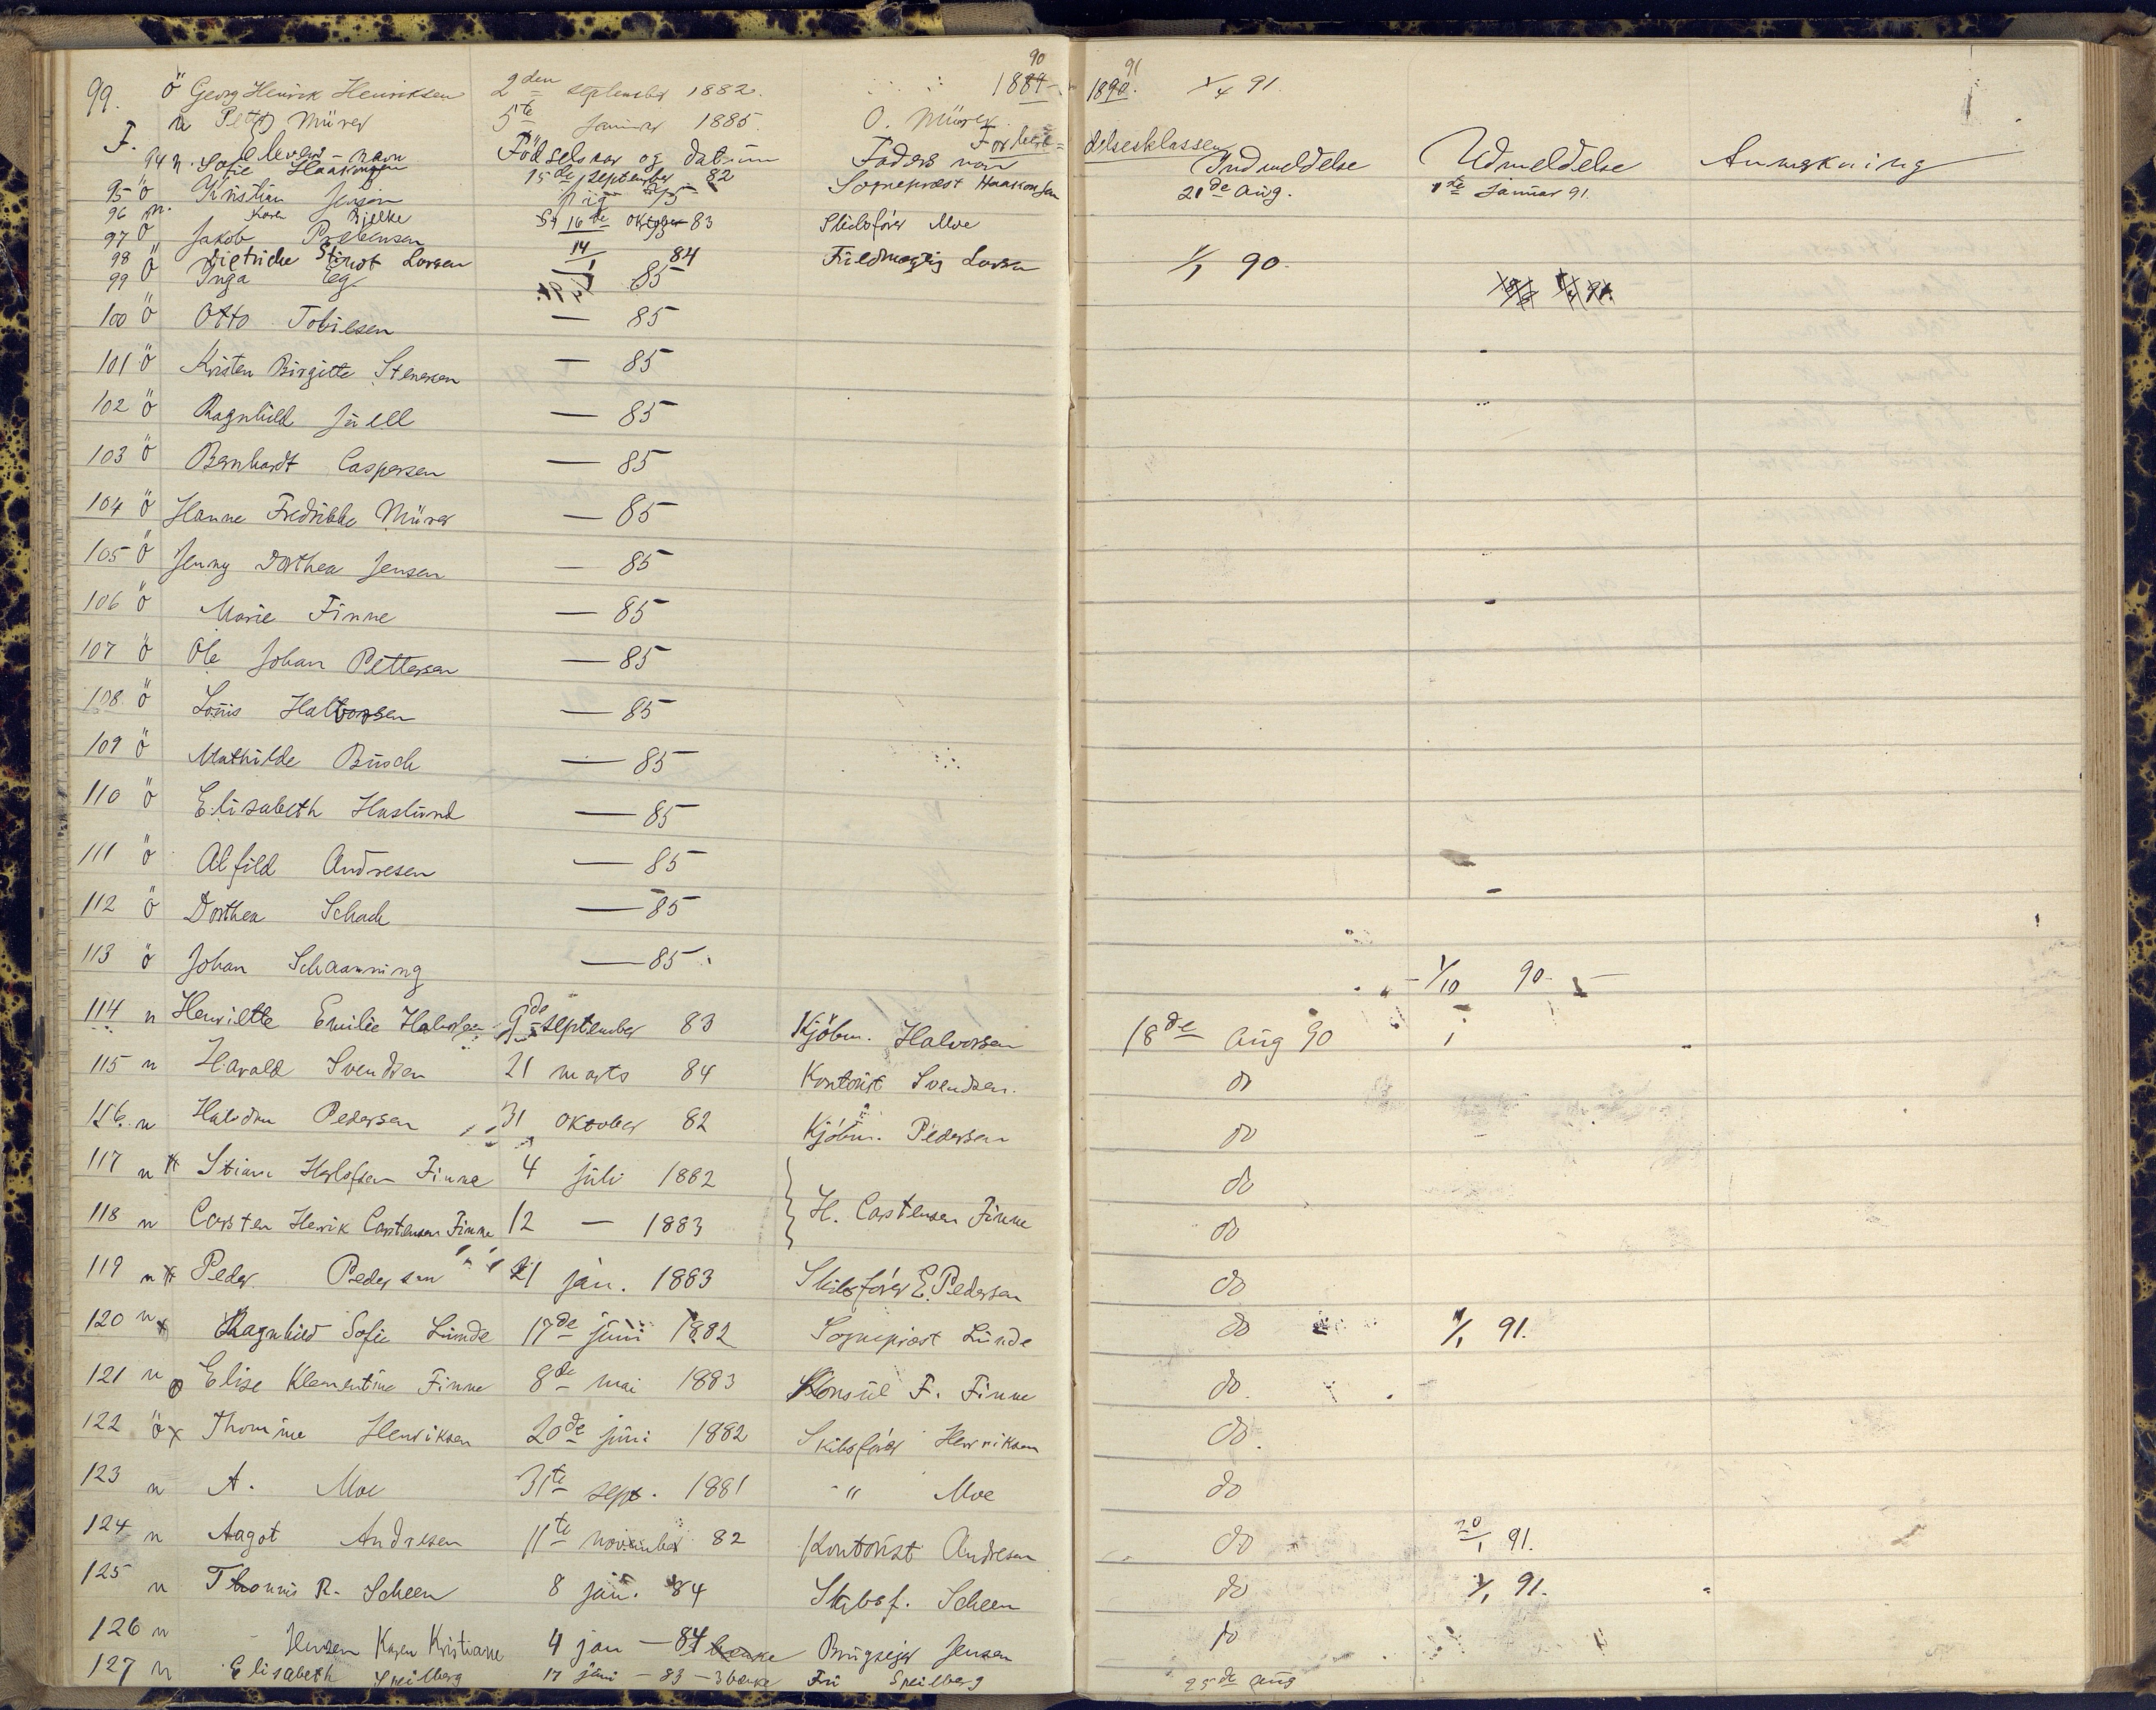 90 91
99. ö Georg Henrik Henriksen 2den september 1882. 1889 1890. 1/4 91
n Petter Mürer 5te januar 1885. O. Mürer
F. Forberedelsesklassen
Elevens navn Födselsaar og datum Faders navn Indmeldelse Udmeldelse Anmerkning
94 n. Sofie Haakonsen 15de september 82 Sogneprest Haakonsen 21de aug. 1ste januar 91.
95 ö Kristian Jensen
96 n. Karen Bjelke 16de oktober 83 Skibsförer Moe
97 ö Jakob Prebensen
98 ö Dietriche Stindt Larsen 14/1 84 Fuldmægtig Larsen 1/1 90.
99 ö Inga Eeg 85
100 ö Otto Tobiesen — 85
101 ö Kristen Birgitte Stenersen — 85
102 ö Ragnhild Juell — 85
103 ö Bernhardt Caspersen — 85
104 ö Hanne Fredrikke Mürer — 85
105 ö Jenny Dorthea Jensen — 85
106 ö Marie Finne — 85
107 ö Ole Johan Pettersen — 85
108 ö Louis Halvorsen — 85
109 ö Mathilde Busch — 85
110 ö Elisabeth Haslund — 85
111 ö Alfild Andresen — 85
112 ö Dorthea Schach — 85
113 ö Johan Schaanning — 85 1/10 90.
114 n Henriette Emilie Halvorsen 9de september 83 Kjöbm. Halvorsen 18de aug 90
115 n Harald Svendsen 21 marts 84 Kontorist Svendsen. do
116. n Halvdan Pedersen 31 oktober 82 Kjöbm. Pedersen do
117 n Stian Herlofsen Finne 4 juli 1882 do
118 n Carsten Henrik Carstensen Finne 12 — 1883 H. Carstensen Finne do
119 n Peder Pedersen 21 jan. 1883 Skibsförer E. Pedersen do
120 n x Ragnhild Sofie Lunde 17de juni 1882 Sogneprest Lunde do 1/1 91.
121 n Elise Klementine Finne 8de mai 1883 Konsul F. Finne do.
122 ö x Thomine Henriksen 20de juni 1882 Skibsförer Henriksen do.
123 n A. Moe 31te sept. 1881 " Moe do
124 n Aagot Andresen 11te november 82 Kontorist Andresen do 20/1 91.
125 n Thomis R. Scheen 8 jan. 84 Skibsf. Scheen do 1/1 91.
126 n Jensen Karen Kristiane 4 jan — 84 Brugseier Jensen do
127 n Elisabeth Speilberg 17 juni — 83 — 3 bænke Fru Speilberg 25de aug